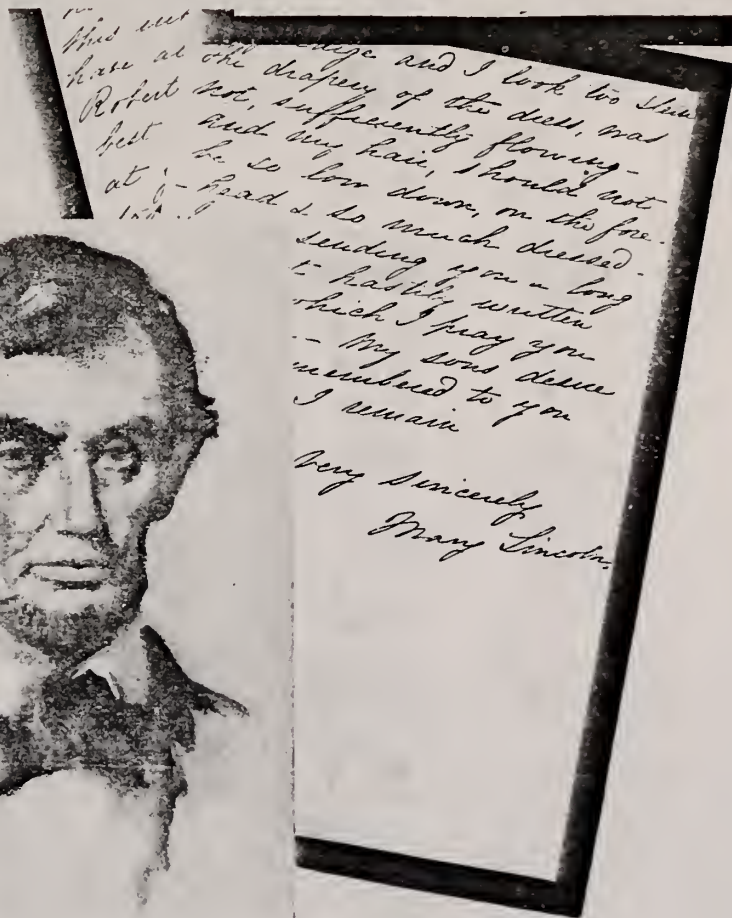 this
have at
Robert
best
at
and I look too
the drapery of the dress, was
not, sufficiently flowing -
and my hair, should not
be so low down, on the fore-
head & so much dressed -
sending you a long
hastily written
which I pray you
- My sons desire
membered to you
I remain
Very Sincerely
Mary Lincoln.